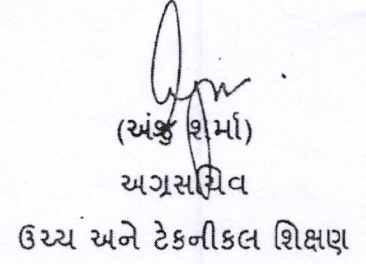 (અંજુ શર્મા)
અગ્રસચિવ
ઉચ્ચ અને ટેકનીકલ શિક્ષણ